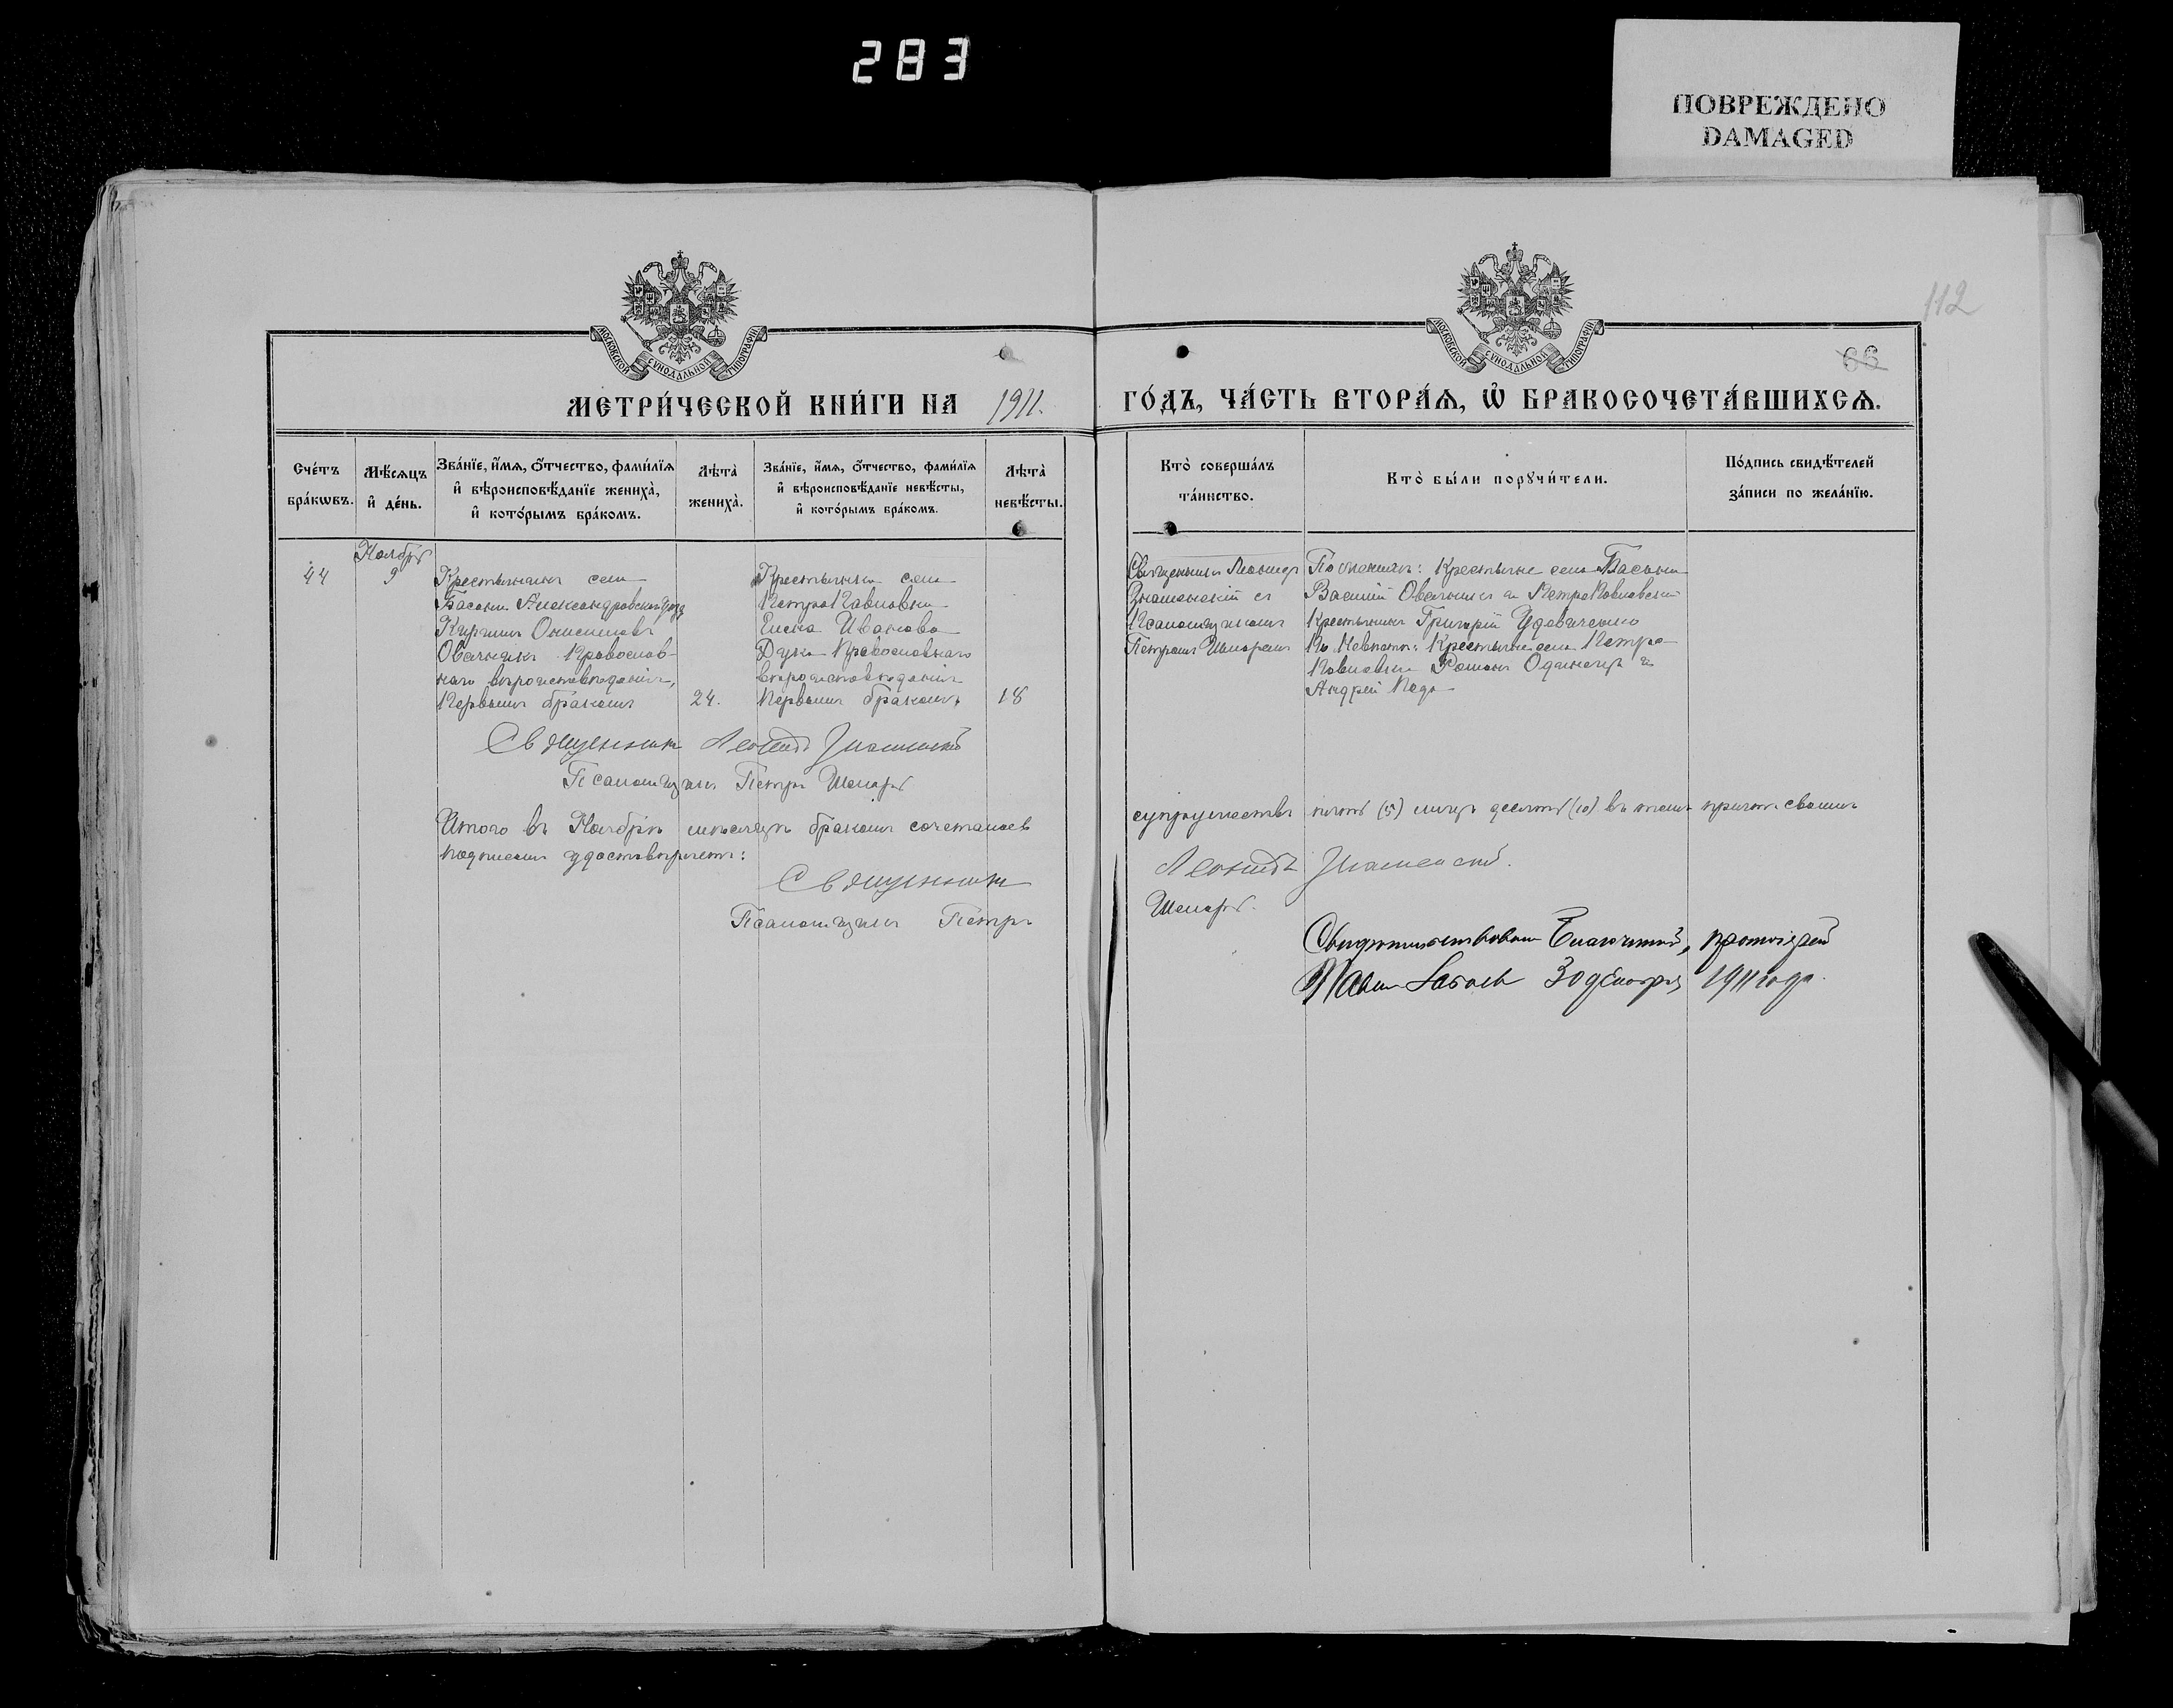 283
ПОВРЕЖДЕНО
DAMAGED
112
66
МОСКОВСКОЙ СѴНОДАЛЬНОЙ ТИПОГРАФІИ
МОСКОВСКОЙ СѴНОДАЛЬНОЙ ТИПОГРАФІИ
МЕТРИ́ЧЕСКОЙ КНИ́ГИ НА 1911. ГО́ДЪ, ЧА́СТЬ ВТОРА́Ѧ, Ѡ҆ БРАКОСОЧЕТА́ВШИХСѦ.
Сче́тъ бра́кѡвъ.
Мѣ́сѧцъ и҆ де́нь.
Зва́нїе, и҆́мѧ, ѻ҆́тчество, фами́лїѧ и҆ вѣроисповѣ́данїе жениха̀, и҆ кото́рымъ бра́комъ.
Лѣта̀ жениха̀.
Зва́нїе, и҆́мѧ, ѻ҆́тчество, фами́лїѧ и҆ вѣроисповѣ́данїе невѣ́сты, и҆ кото́рымъ бра́комъ.
Лѣта̀ невѣ́сты.
Кто̀ соверша́лъ та́инство.
Кто̀ бы́ли порꙋчи́тели.
По́дпись свидѣ́телей за́писи по жела́нїю.
44
Ноябрь
9
Крестьянинъ села
Басани Александровскаго уѣзда
Онисимовъ
Овсяникъ Православ-
наго вѣроисповѣданія,
Первымъ бракомъ
24.
Крестьянка села
ПетроПавловки
Елена Иванова
Дука Православнаго
вѣроисповѣданія
Первымъ бракомъ
18
Священникъ Леонидъ
Знаменскій съ
Псаломщикомъ
Петромъ
По женихѣ: Крестьяне села Басани
Василій Овсяникъ и ПетроПавловки
Крестьянинъ Григорій Удовиченко
По Невѣстѣ: Крестьяне села Петро
Павловки Романъ Одинецъ и
Андрей
Священникъ Леонидъ Знаменскій
Псаломщикъ Петръ
Итого въ Ноябрѣ мѣсяцѣ бракомъ сочеталось супружествъ пять (5) лицъ десять (10) въ чемъ причтъ своимъ
подписомъ удостовѣряетъ:
Священникъ Леонидъ Знаменскій.
Псаломщикъ Петръ
Свидѣтельствовалъ Благочинный, протоіерей
30 декабря 1911 года.